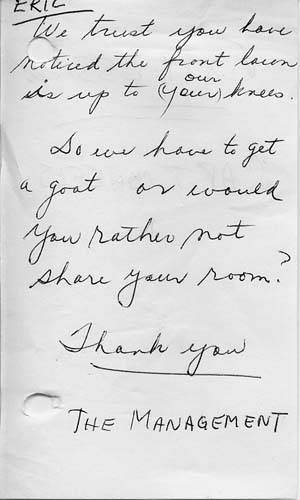 ERIC
We trust you have
noticed the front lawn
is up to (your) our knees.
Do we have to get
a goat or would
you rather not
share your room?
Thank you
THE MANAGEMENT